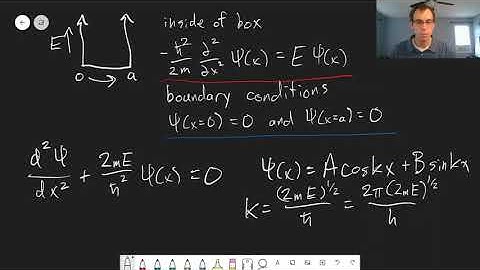 a
E↑
0 → a
inside of box
-ħ²/2m ∂²/∂x² Ψ(x) = E Ψ(x)
boundary conditions
Ψ(x=0) = 0 and Ψ(x=a) = 0
d²Ψ/dx² + 2mE/ħ² Ψ(x) = 0
Ψ(x) = A cos kx + B sin kx
k = (2mE)^1/2/ħ = 2π(2mE)^1/2/h